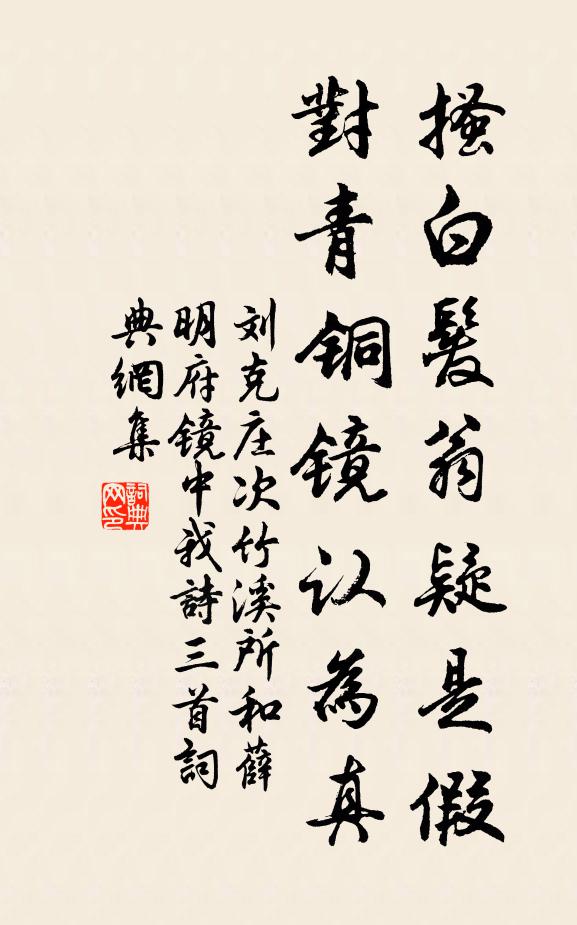 搔白髮翁疑是假
對青铜镜认為真
刘克庄次竹溪所和薛
明府镜中我詩三首詞
典網集
詞典网印